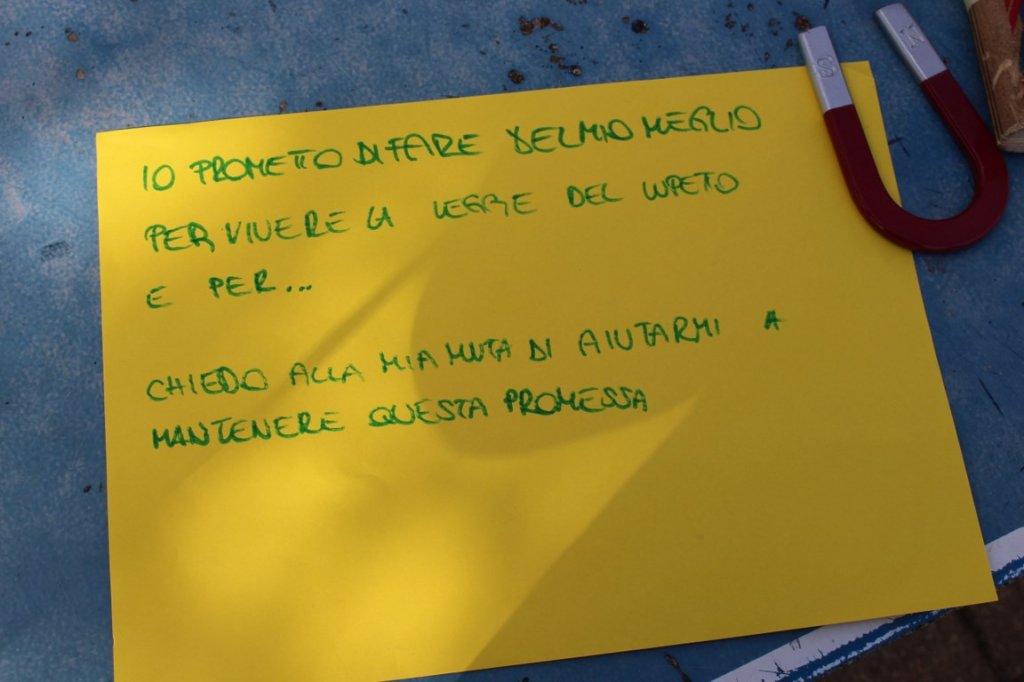 IO PROMETTO DI FARE DEL MIO MEGLIO
PER VIVERE LA LEGGE DEL LUPETO
E PER...
CHIEDO ALLA MIA MUTA DI AIUTARMI A
MANTENERE QUESTA PROMESSA
S
N